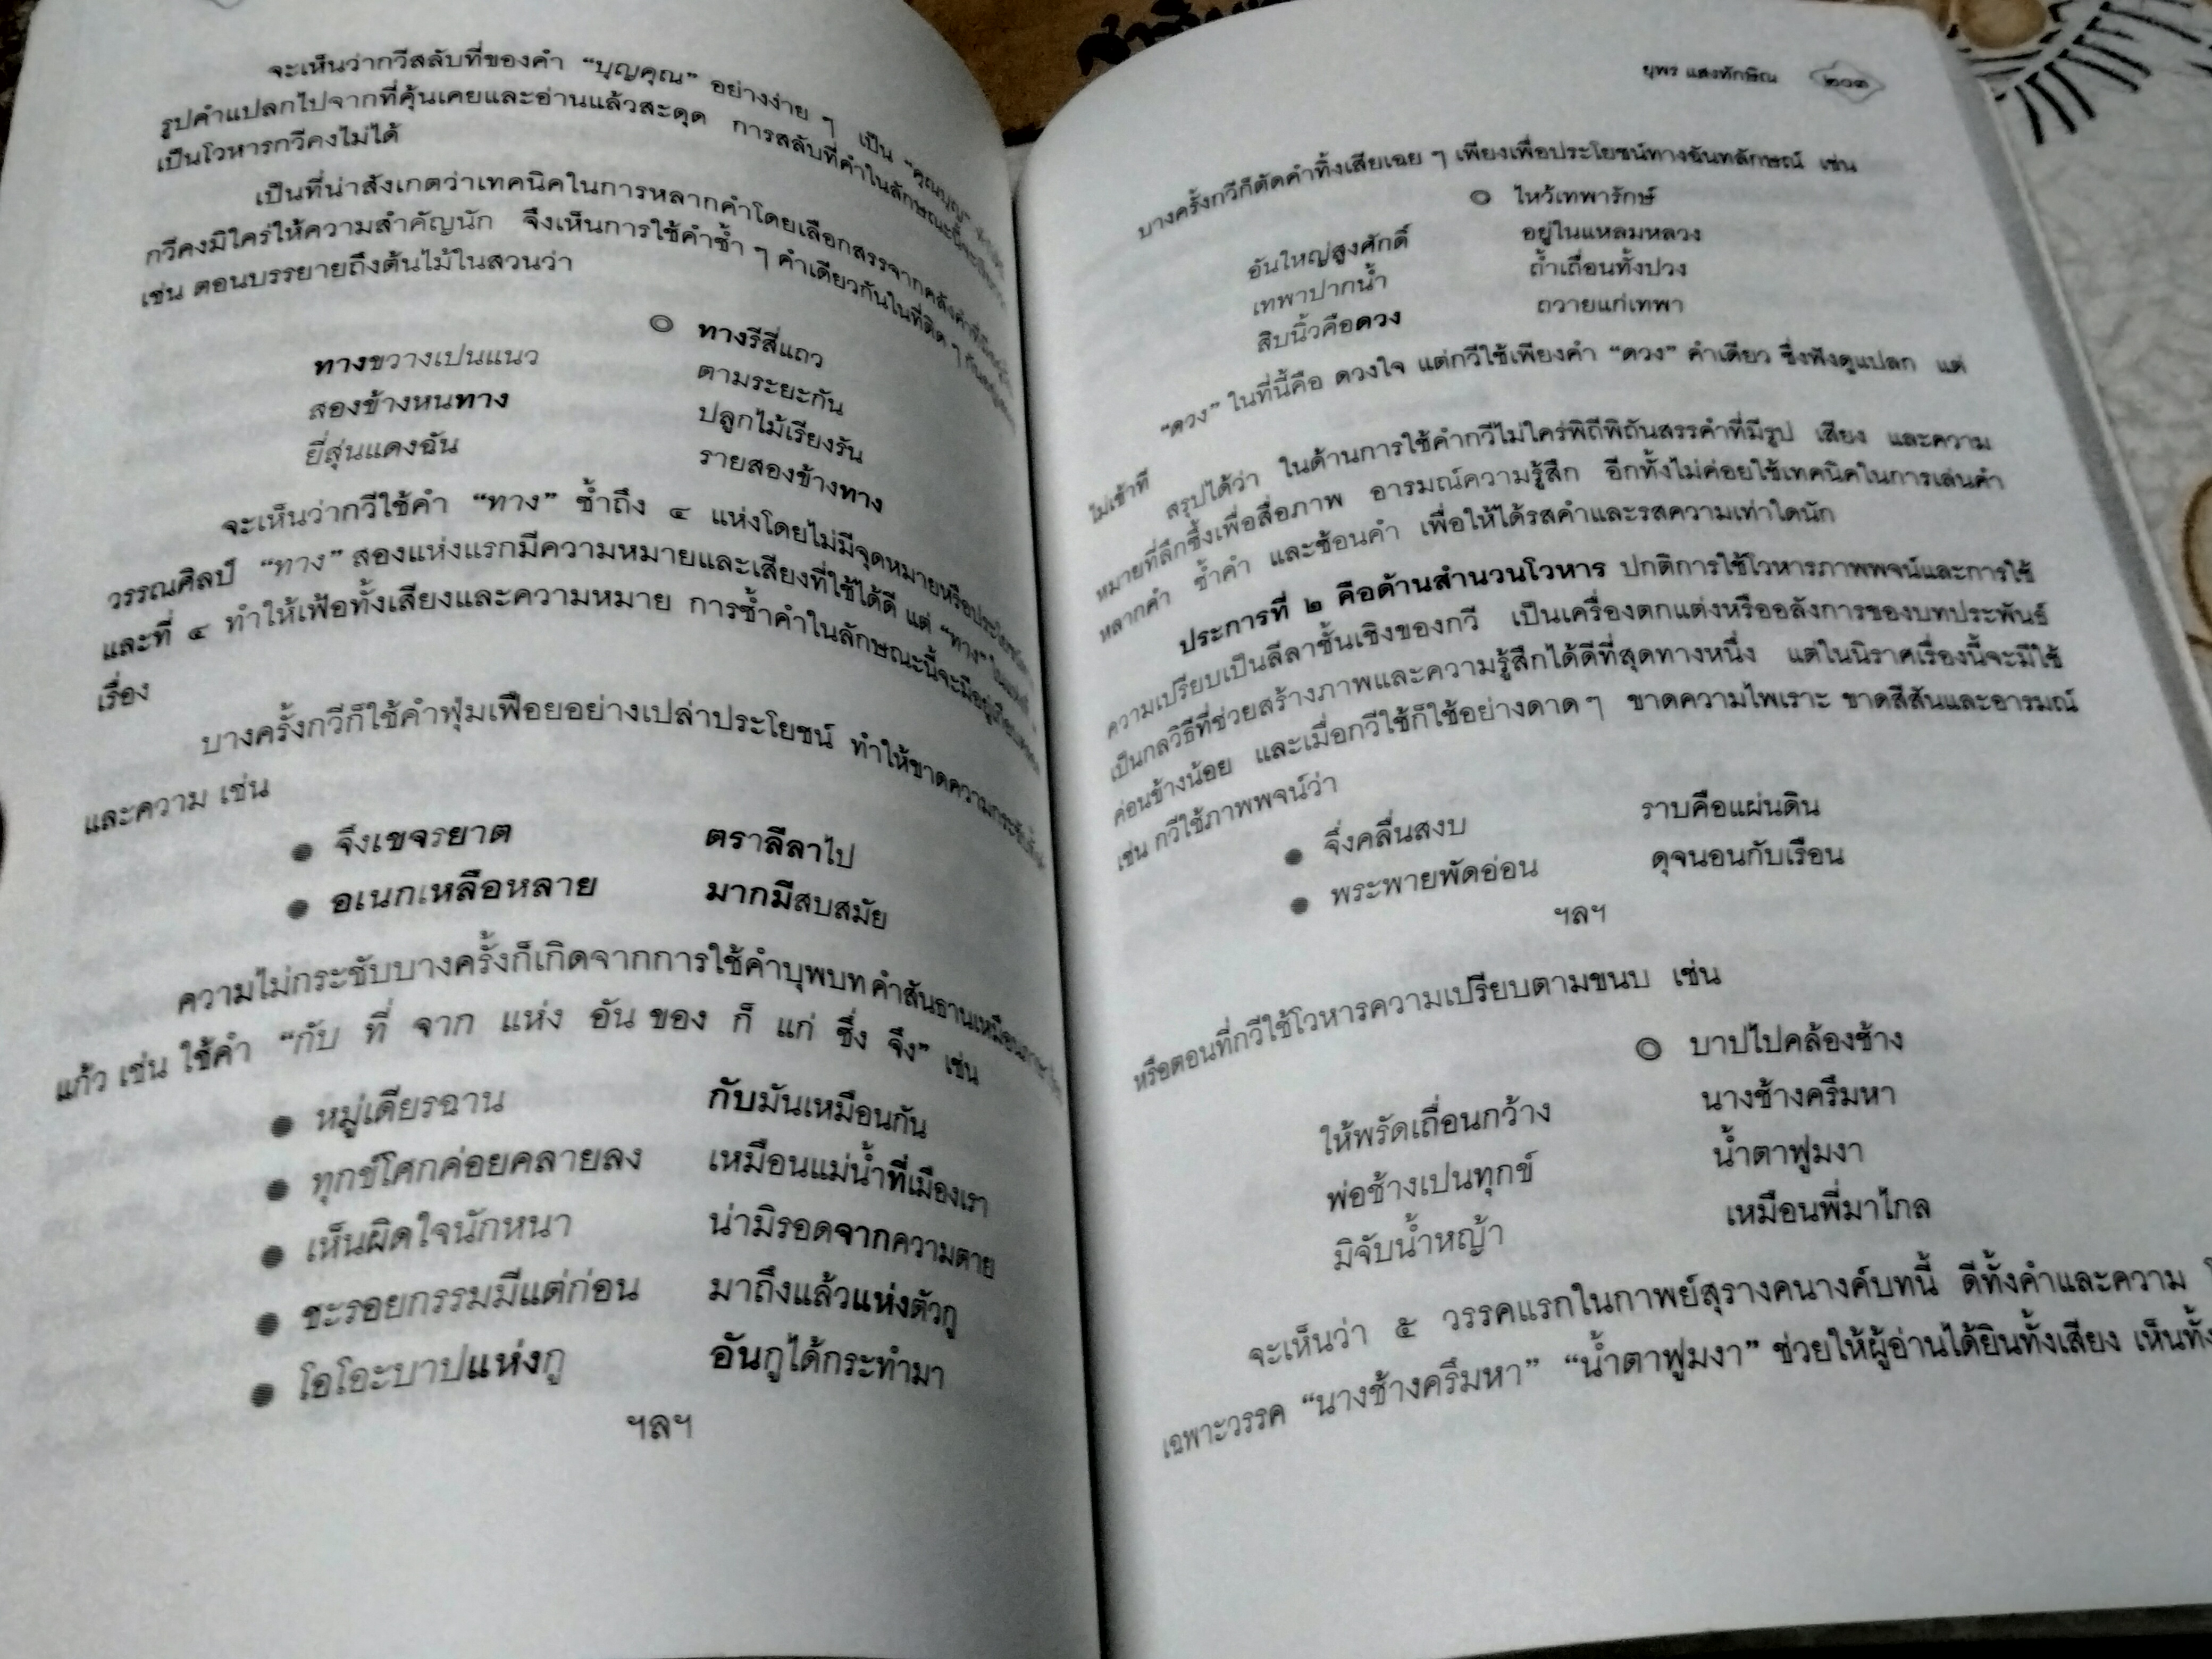 จะเห็นว่ากวีสลับที่ของคำ “บุญคุณ” อย่างง่าย ๆ เป็น “คุณบุญ”
รูปคำแปลกไปจากที่คุ้นเคยและอ่านแล้วสะดุด การสลับที่คำในลักษณะนี้จะ
เป็นโวหารกวีคงไม่ได้
เป็นที่น่าสังเกตว่าเทคนิคในการหลากคำโดยเลือกสรรจากคลังคำ
กวีคงมิใคร่ให้ความสำคัญนัก จึงเห็นการใช้คำซ้ำ ๆ คำเดียวกันในที่ติด ๆ กัน
เช่น ตอนบรรยายถึงต้นไม้ในสวนว่า
๏ ทางรีสี่แถว
ทางขวางเปนแนว ตามระยะกัน
สองข้างหนทาง ปลูกไม้เรียงรัน
ยี่สุ่นแดงฉัน รายสองข้างทาง
จะเห็นว่ากวีใช้คำ “ทาง” ซ้ำถึง ๔ แห่งโดยไม่มีจุดหมายหรือประโยชน์
วรรณศิลป์ “ทาง” สองแห่งแรกมีความหมายและเสียงที่ใช้ได้ดี แต่ “ทาง” ในแห่งที่
และที่ ๔ ทำให้เฟ้อทั้งเสียงและความหมาย การซ้ำคำในลักษณะนี้จะมีอยู่
เรื่อง
บางครั้งกวีก็ใช้คำฟุ่มเฟือยอย่างเปล่าประโยชน์ ทำให้ขาดความกระชับ
และความ เช่น
● จึงเขจรยาต ตราลีลาไป
● อเนกเหลือหลาย มากมีสบสมัย
ความไม่กระชับบางครั้งก็เกิดจากการใช้คำบุพบท คำสันธานเหมือนภาษา
แก้ว เช่น ใช้คำ “กับ ที่ จาก แห่ง อัน ของ ก็ แก่ ซึ่ง จึง” เช่น
● หมู่เดียรฉาน กับมันเหมือนกัน
● ทุกข์โศกค่อยคลายลง เหมือนแม่น้ำที่เมืองเรา
● เห็นผิดใจนักหนา น่ามิรอดจากความตาย
● ชะรอยกรรมมีแต่ก่อน มาถึงแล้วแห่งตัวกู
● โอโอะบาปแห่งกู อันกูได้กระทำมา
ฯลฯ
ยุพร แสงทักษิณ ๒๐๓
บางครั้งกวีก็ตัดคำทิ้งเสียเฉย ๆ เพียงเพื่อประโยชน์ทางฉันทลักษณ์ เช่น
๏ ไหว้เทพารักษ์
อันใหญ่สูงศักดิ์ อยู่ในแหลมหลวง
เทพาปากน้ำ ถ้ำเถื่อนทั้งปวง
สิบนิ้วคือดวง ถวายแก่เทพา
“ดวง” ในที่นี้คือ ดวงใจ แต่กวีใช้เพียงคำ “ดวง” คำเดียว ซึ่งฟังดูแปลก แต่
ไม่เข้าที่
สรุปได้ว่า ในด้านการใช้คำกวีไม่ใคร่พิถีพิถันสรรคำที่มีรูป เสียง และความ
หมายที่ลึกซึ้งเพื่อสื่อภาพ อารมณ์ความรู้สึก อีกทั้งไม่ค่อยใช้เทคนิคในการเล่นคำ
หลากคำ ซ้ำคำ และซ้อนคำ เพื่อให้ได้รสคำและรสความเท่าใดนัก
ประการที่ ๒ คือด้านสำนวนโวหาร ปกติการใช้โวหารภาพพจน์และการใช้
ความเปรียบเป็นลีลาชั้นเชิงของกวี เป็นเครื่องตกแต่งหรืออลังการของบทประพันธ์
เป็นกลวิธีที่ช่วยสร้างภาพและความรู้สึกได้ดีที่สุดทางหนึ่ง แต่ในนิราศเรื่องนี้จะมีใช้
ค่อนข้างน้อย และเมื่อกวีใช้ก็ใช้อย่างดาด ๆ ขาดความไพเราะ ขาดสีสันและอารมณ์
เช่น กวีใช้ภาพพจน์ว่า
● จึ่งคลื่นสงบ ราบคือแผ่นดิน
● พระพายพัดอ่อน ดุจนอนกับเรือน
ฯลฯ
หรือตอนที่กวีใช้โวหารความเปรียบตามขนบ เช่น
๏ บาปไปคล้องช้าง
ให้พรัดเถื่อนกว้าง นางช้างครึมหา
พ่อช้างเปนทุกข์ น้ำตาฟูมงา
มิจับน้ำหญ้า เหมือนพี่มาไกล
จะเห็นว่า ๕ วรรคแรกในกาพย์สุรางคนางค์บทนี้ ดีทั้งคำและความ
เฉพาะวรรค “นางช้างครึมหา” “น้ำตาฟูมงา” ช่วยให้ผู้อ่านได้ยินทั้งเสียง เห็นทั้ง